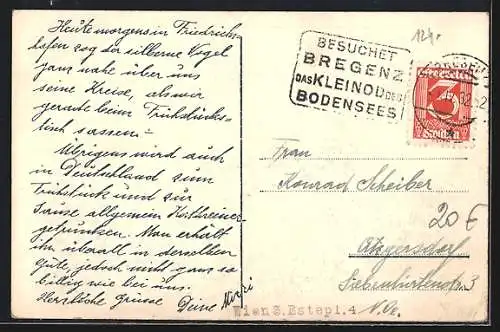 Heute morgens in Friedrichs-
hafen zog der silberne Vogel
ganz nahe über uns
seine Kreise, als wir
gerade beim Frühstücks-
tisch sassen. –
Übrigens wird auch
in Deutschland zum
Frühstück und zur
Jause allgemein Kathreiner
getrunken. Man erhält
ihn überall in derselben
Güte, jedoch nicht ganz so
billig wie bei uns.
Herzliche Grüsse Deine Mizzi
BESUCHET
BREGENZ
DAS KLEINOD DES
BODENSEES
BREGENZ
3
Groschen
Frau
Konrad Scheiber
Atzgersdorf
Siebenhirtenstr. 3
N.Ö.
20 €
Wien 3. Estepl. 4